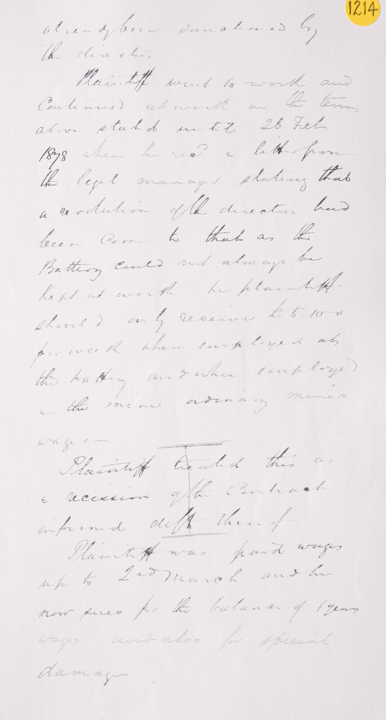 1214
already been sanctioned by
the director
Plaintiff went to work and
Continued at work on the terms
above stated until 26 Feb
1878 when he recd a letter from
the legal manager stating that
a resolution of the directors had
been Come to that as the
Battery could not always be
Kept at work he plaintiff
should only receive £5
per week when employed at
the battery and when employed
in the mine ordinary miners
wages—
Plaintiff treated this as
a recession of the Contract
informed deft thereof
Plaintiff was paid wages
up to 2nd March and he
now sues for the balance of 1 years
wages and also for special
damage